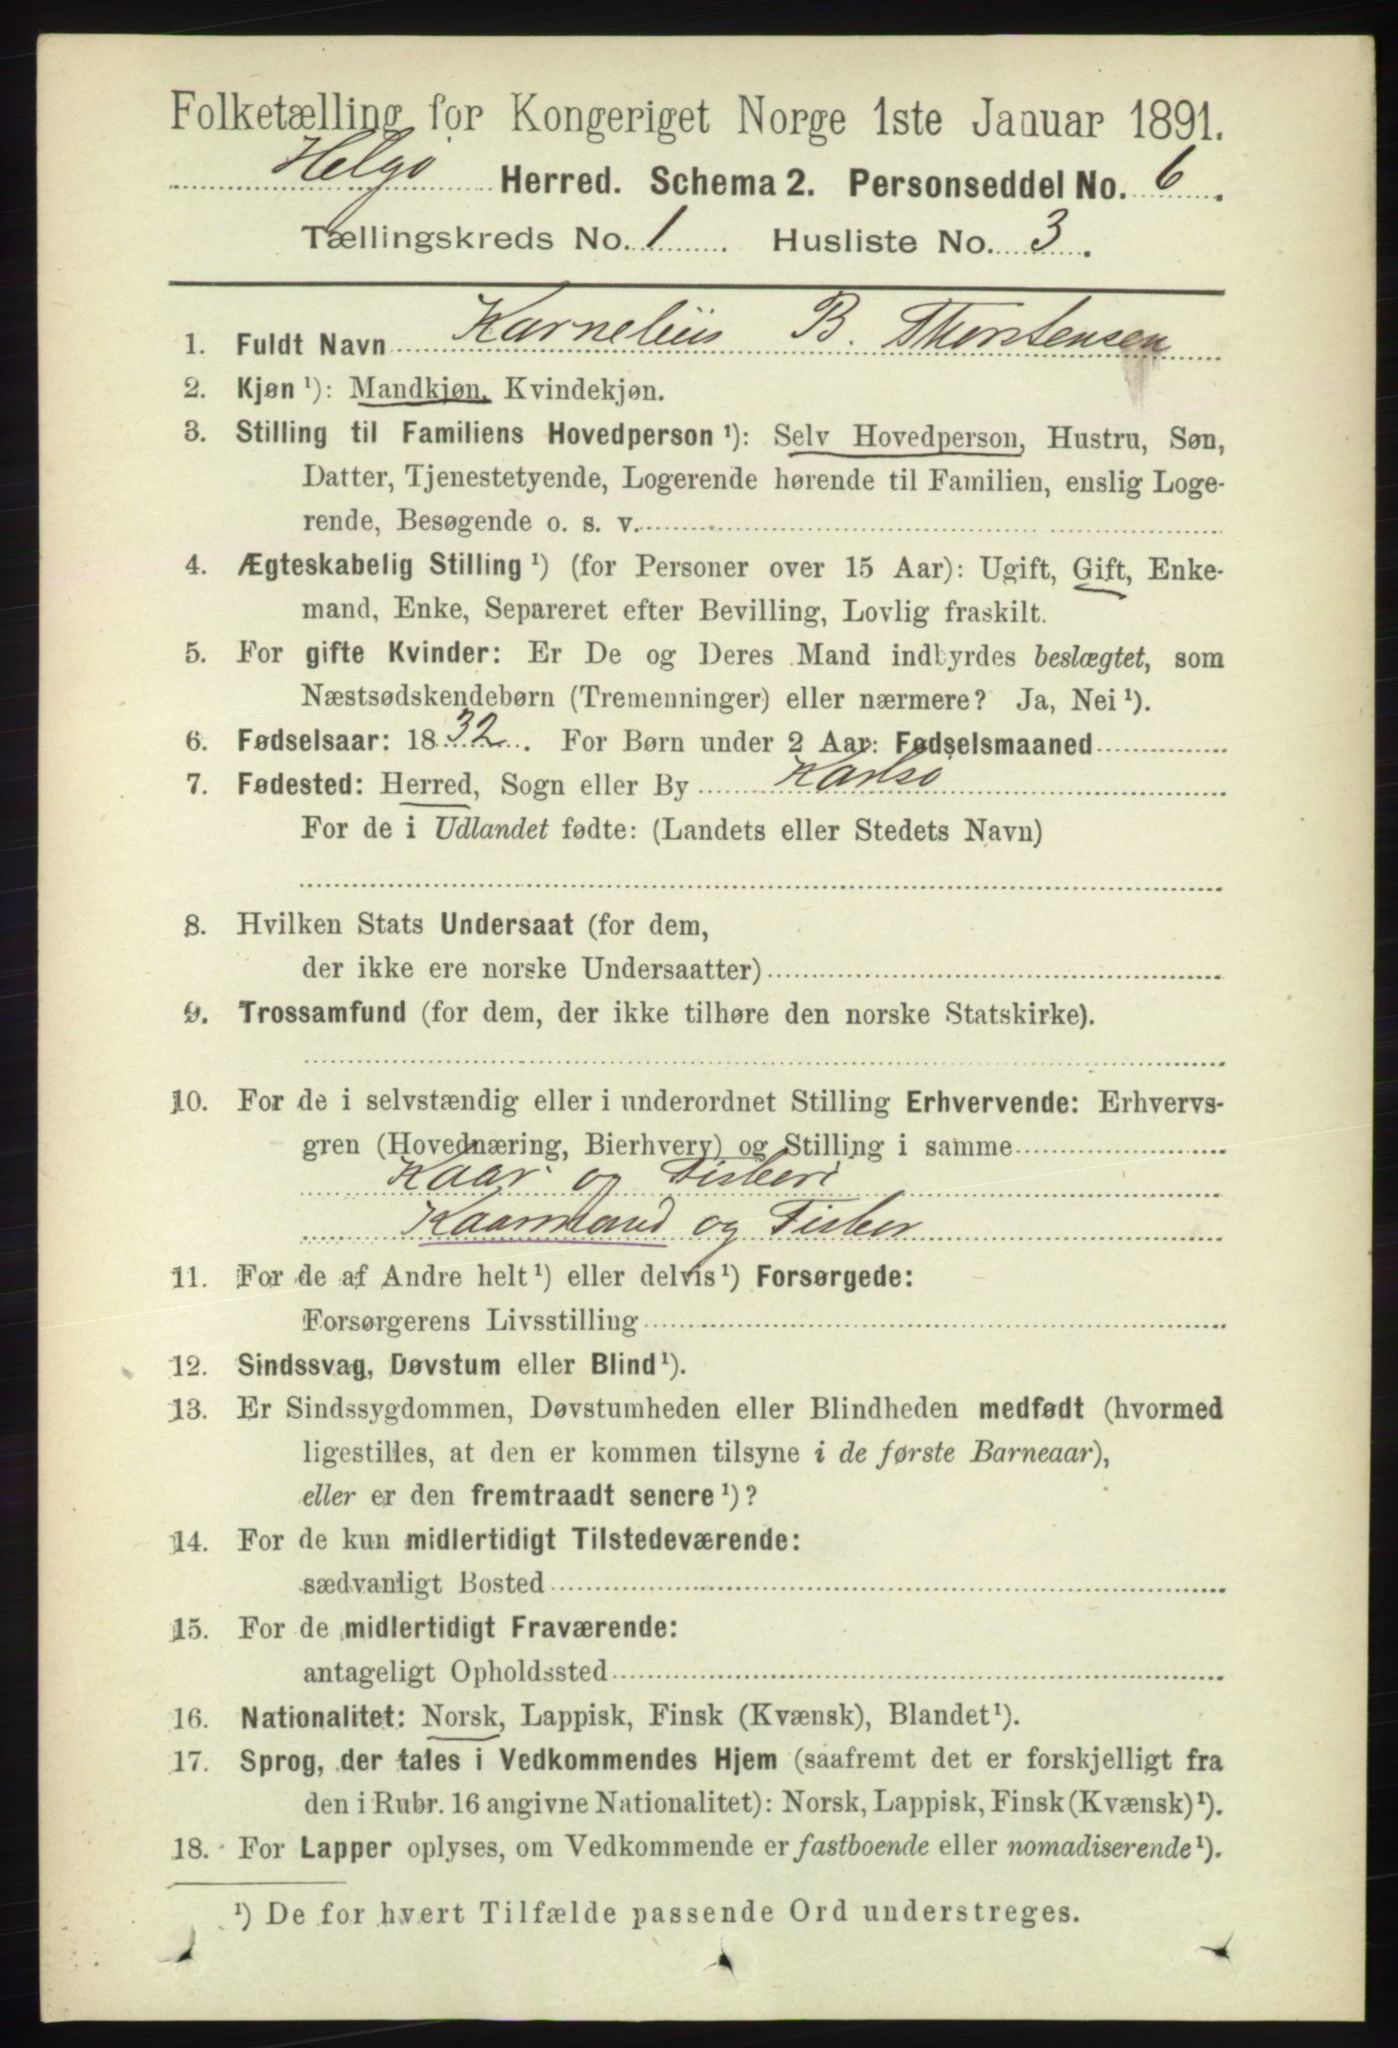 Folketælling for Kongeriget Norge 1ste Januar 1891.
Helgø Herred. Schema 2. Personseddel No. 6.
Tællingskreds No. 1. Husliste No. 3.
1. Fuldt Navn Karnelius B. Thorstensen
2. Kjøn ¹): Mandkjøn, Kvindekjøn.
3. Stilling til Familiens Hovedperson ¹): Selv Hovedperson, Hustru, Søn,
Datter, Tjenestetyende, Logerende hørende til Familien, enslig Loge-
rende, Besøgende o. s. v.
4. Ægteskabelig Stilling ¹) (for Personer over 15 Aar): Ugift, Gift, Enke-
mand, Enke, Separeret efter Bevilling, Lovlig fraskilt.
5. For gifte Kvinder: Er De og Deres Mand indbyrdes beslægtet, som
Næstsødskendebørn (Tremenninger) eller nærmere? Ja, Nei ¹).
6. Fødselsaar: 1832. For Børn under 2 Aar: Fødselsmaaned
7. Fødested: Herred, Sogn eller By Karlsø
For de i Udlandet fødte: (Landets eller Stedets Navn)
8. Hvilken Stats Undersaat (for dem,
der ikke ere norske Undersaatter)
9. Trossamfund (for dem, der ikke tilhøre den norske Statskirke).
10. For de i selvstændig eller i underordnet Stilling Erhvervende: Erhvervs-
gren (Hovednæring, Bierhverv) og Stilling i samme
Kaar og Fiskeri
Kaarmand og Fisker
11. For de af Andre helt ¹) eller delvis ¹) Forsørgede:
Forsørgerens Livsstilling
12. Sindssvag, Døvstum eller Blind ¹).
13. Er Sindssygdommen, Døvstumheden eller Blindheden medfødt (hvormed
ligestilles, at den er kommen tilsyne i de første Barneaar),
eller er den fremtraadt senere ¹)?
14. For de kun midlertidigt Tilstedeværende:
sædvanligt Bosted
15. For de midlertidigt Fraværende:
antageligt Opholdssted
16. Nationalitet: Norsk, Lappisk, Finsk (Kvænsk), Blandet ¹).
17. Sprog, der tales i Vedkommendes Hjem (saafremt det er forskjelligt fra
den i Rubr. 16 angivne Nationalitet): Norsk, Lappisk, Finsk (Kvænsk) ¹).
18. For Lapper oplyses, om Vedkommende er fastboende eller nomadiserende ¹).
¹) De for hvert Tilfælde passende Ord understreges.